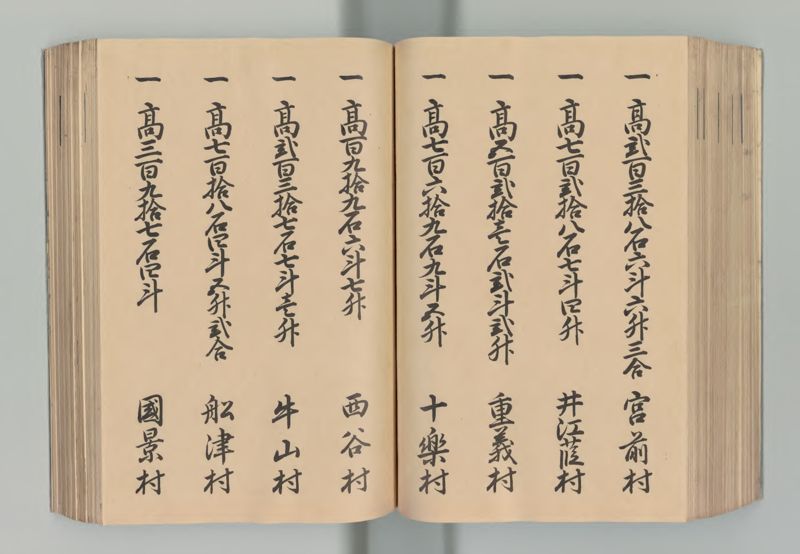 一 高弐百三拾八石六斗六升三合 宮前村
一 高七百弐拾八石七斗四升 井江葭村
一 高五百弐拾壱石弐斗弐升 重義村
一 高七百六拾九石九斗五升 十樂村
一 高百九拾九石六斗七升 西谷村
一 高弐百三拾七石七斗壱升 牛山村
一 高七百拾八石四斗五升弐合 船津村
一 高三百九拾七石四斗 國景村